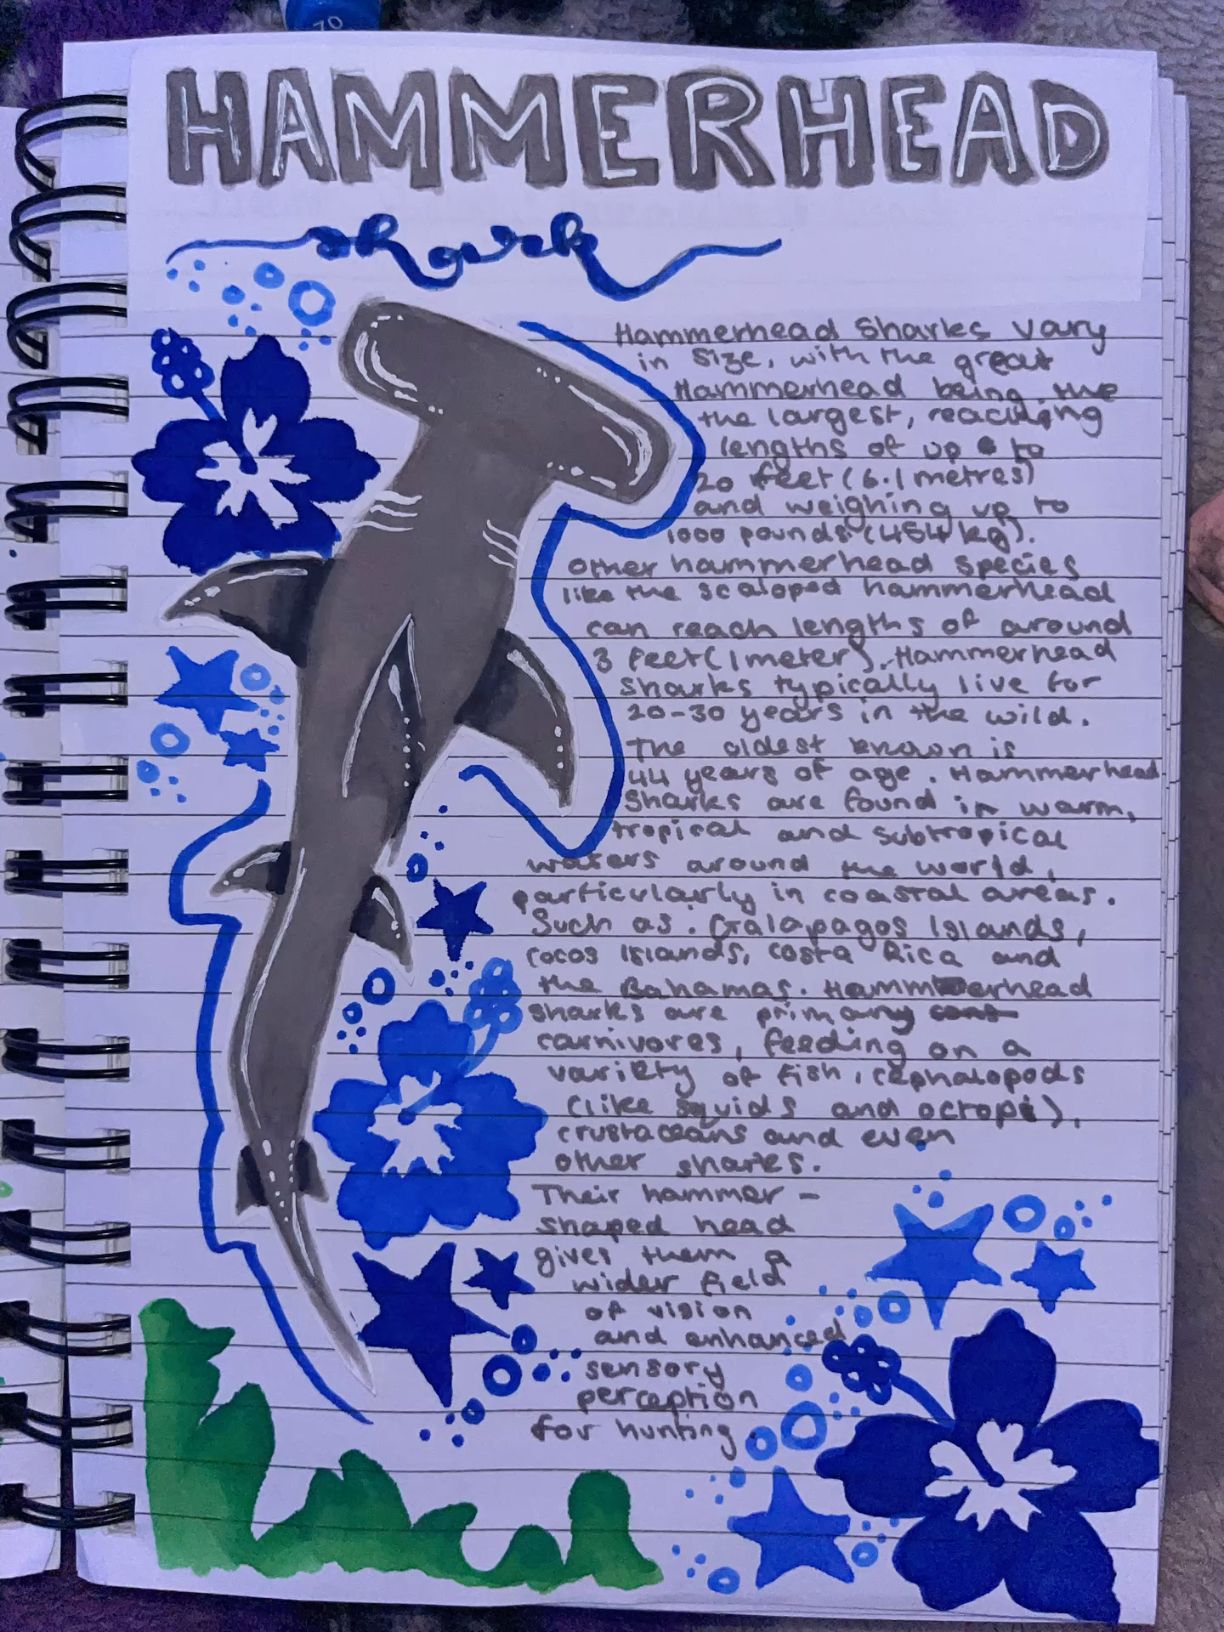 70
HAMMERHEAD
shark
Hammerhead Sharks vary
in size, with the great
Hammerhead being the
the largest, reaching
lengths of up to
20 feet (6.1 metres)
and weighing up to
1000 pounds (454 kg).
other hammerhead species
like the scaloped hammerhead
can reach lengths of around
3 feet (1 meter). Hammerhead
sharks typically live for
20-30 years in the wild.
The oldest known is
44 years of age. Hammerhead
Sharks are found in warm,
tropical and subtropical
waters around the world,
particularly in coastal areas.
Such as. Galapagos Islands,
Cocos Islands, Costa Rica and
the Bahamas. Hammerhead
sharks are primary
carnivores, feeding on a
variety of fish, cephalopods
(like squids and octopi),
crustaceans and even
other sharks.
Their hammer -
shaped head
gives them a
wider field
of vision
and enhanced
sensory
perception
for hunting.